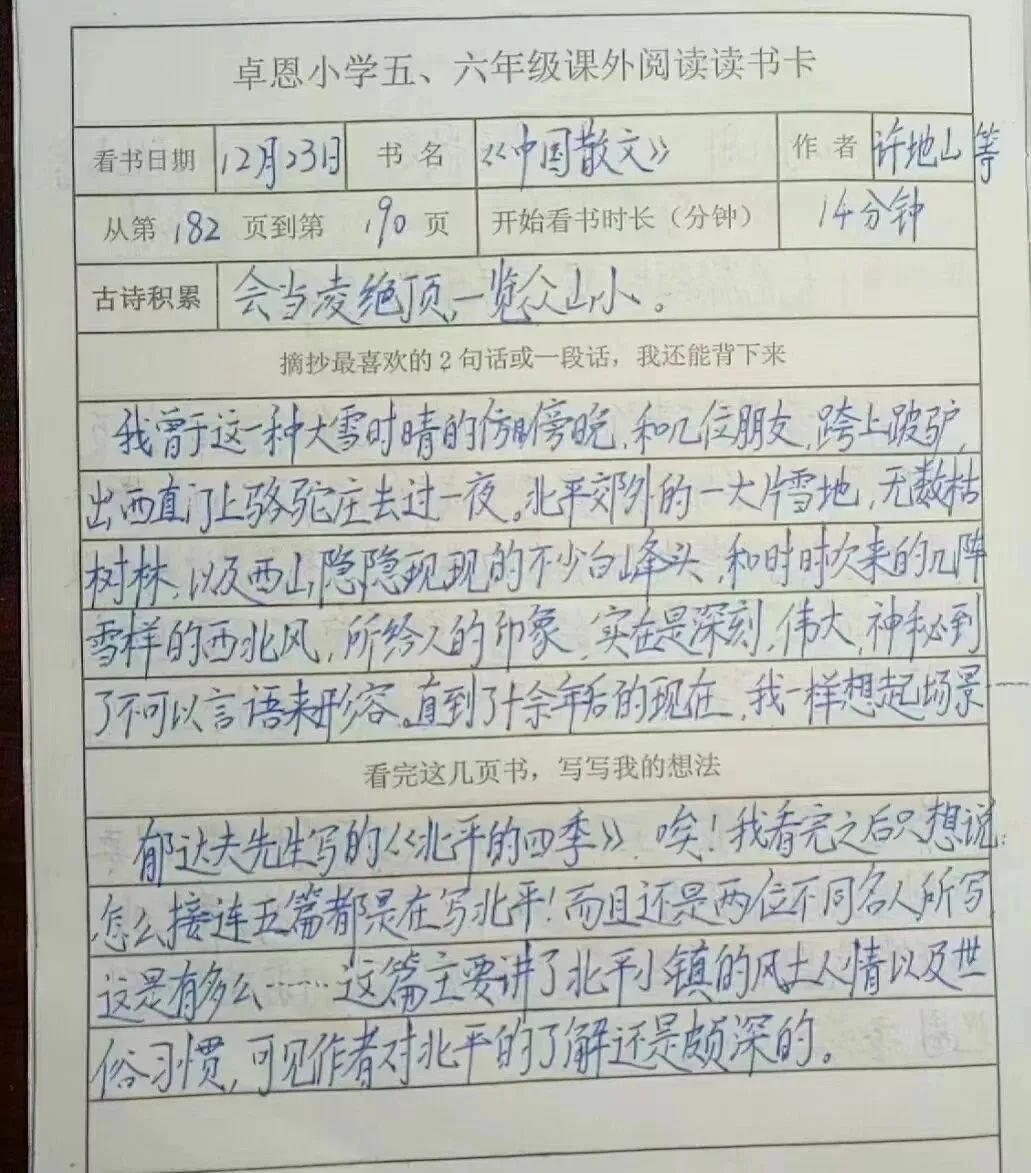 卓恩小学五、六年级课外阅读读书卡
看书日期 12月23日 书名 《中国散文》 作者 许地山等
从第 182 页到第 190 页 开始看书时长（分钟） 14分钟
古诗积累 会当凌绝顶,一览众山小。
摘抄最喜欢的2句话或一段话，我还能背下来
我曾于这一种大雪时晴的傍晚,和几位朋友,跨上跛驴,
出西直门上骆驼庄去过一夜。北平郊外的一大片雪地,无数枯
树林,以及西山隐隐现现的不少白峰头,和时时次来的几阵
雪样的西北风,所给人的印象,实在是深刻,伟大,神秘到
了不可以言语来形容。直到了十余年后的现在,我一样想起场景……
看完这几页书，写写我的想法
郁达夫先生写的《北平的四季》,唉!我看完之后只想说:
怎么接连五篇都是在写北平!而且还是两位不同名人所写
这是有多么……这篇主要讲了北平小镇的风土人情以及世
俗习惯,可见作者对北平的了解还是颇深的。